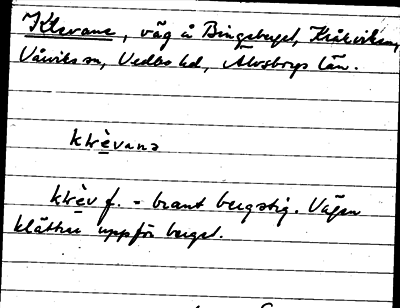 Klevane, väg å Bingsberget, Kråkviksn,
Vårviks sn, Vedbo hd, Älvsborgs län.
klèvanə
klèv f. - brant bergstig. Vägen
klättrar uppför berget.